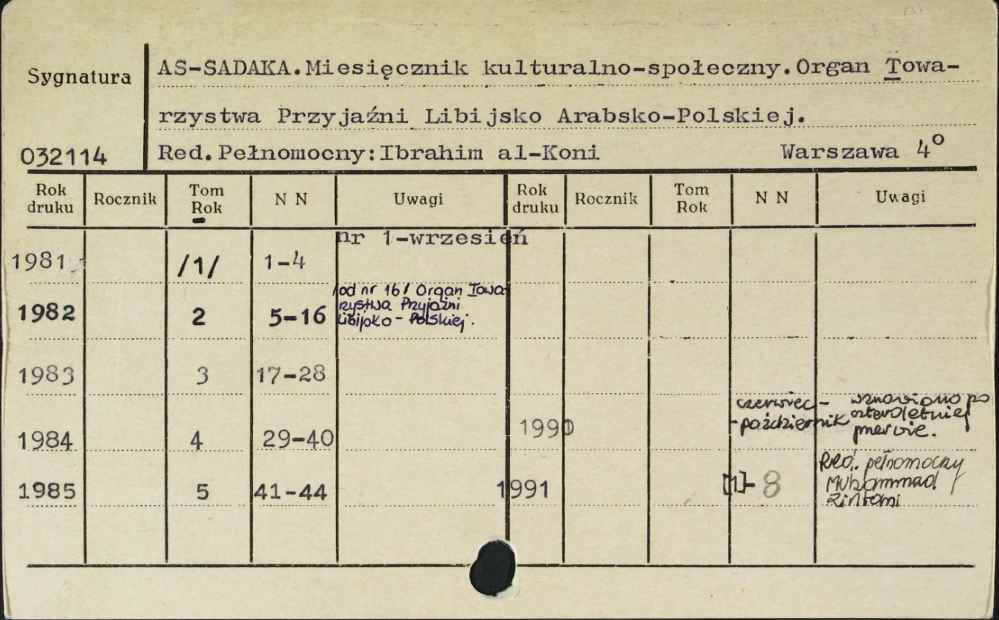 Sygnatura
AS-SADAKA.Miesięcznik kulturalno-społeczny.Organ Towa-
rzystwa Przyjaźni Libijsko Arabsko-Polskiej.
032114 Red.Pełnomocny:Ibrahim al-Koni Warszawa 4°
Rok druku Rocznik Tom Rok N N Uwagi Rok druku Rocznik Tom Rok N N Uwagi
nr 1-wrzesień
1981 /1/ 1-4
/od nr 16/ Organ Towa-
rzystwa Przyjaźni
Libijsko-Polskiej.
1982 2 5-16
1983 3 17-28
czerwiec - wznowiono po
-październik czteroletniej
przerwie.
1984 4 29-40 1990
Red. pełnomocny
Muhammad
1985 5 41-44 1991 [1]-8